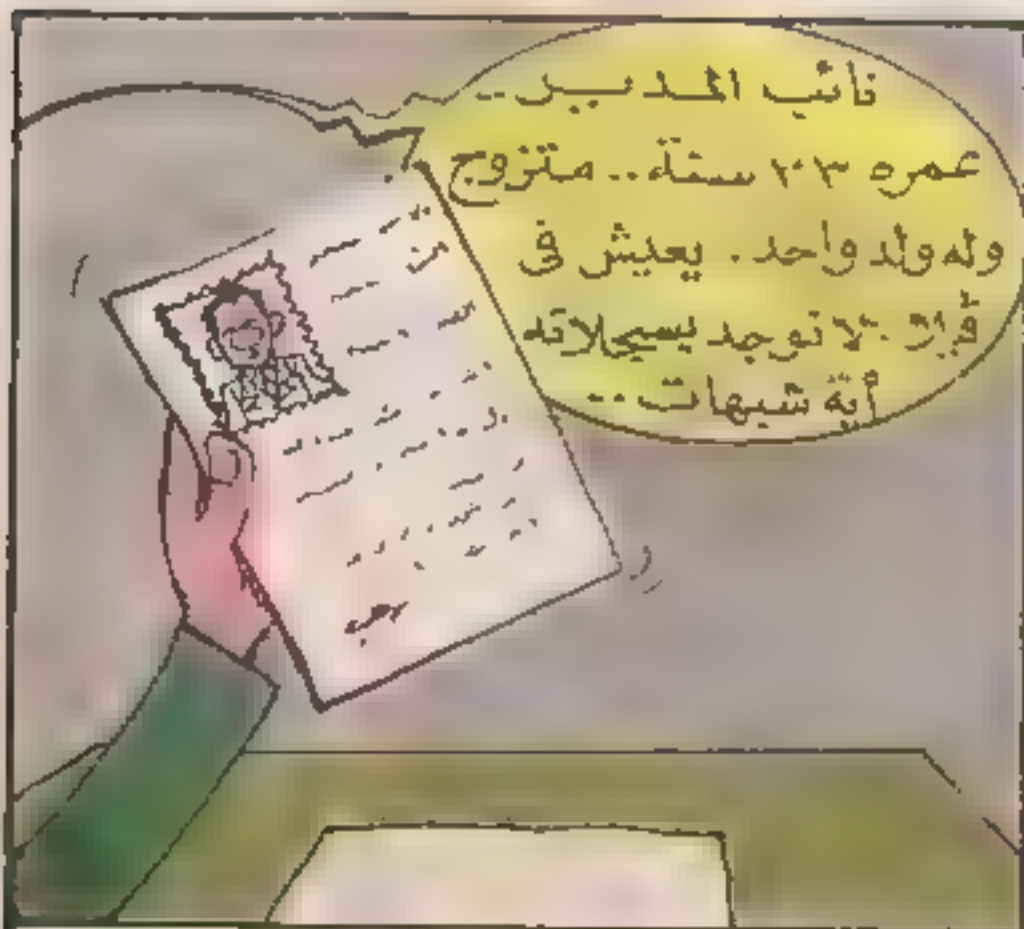 نائب المدير..
عمره ٣٠٣ سنة.. متزوج
وله ولد واحد. يعيش فى
لا توجد بسجلاته
أية شبهات..